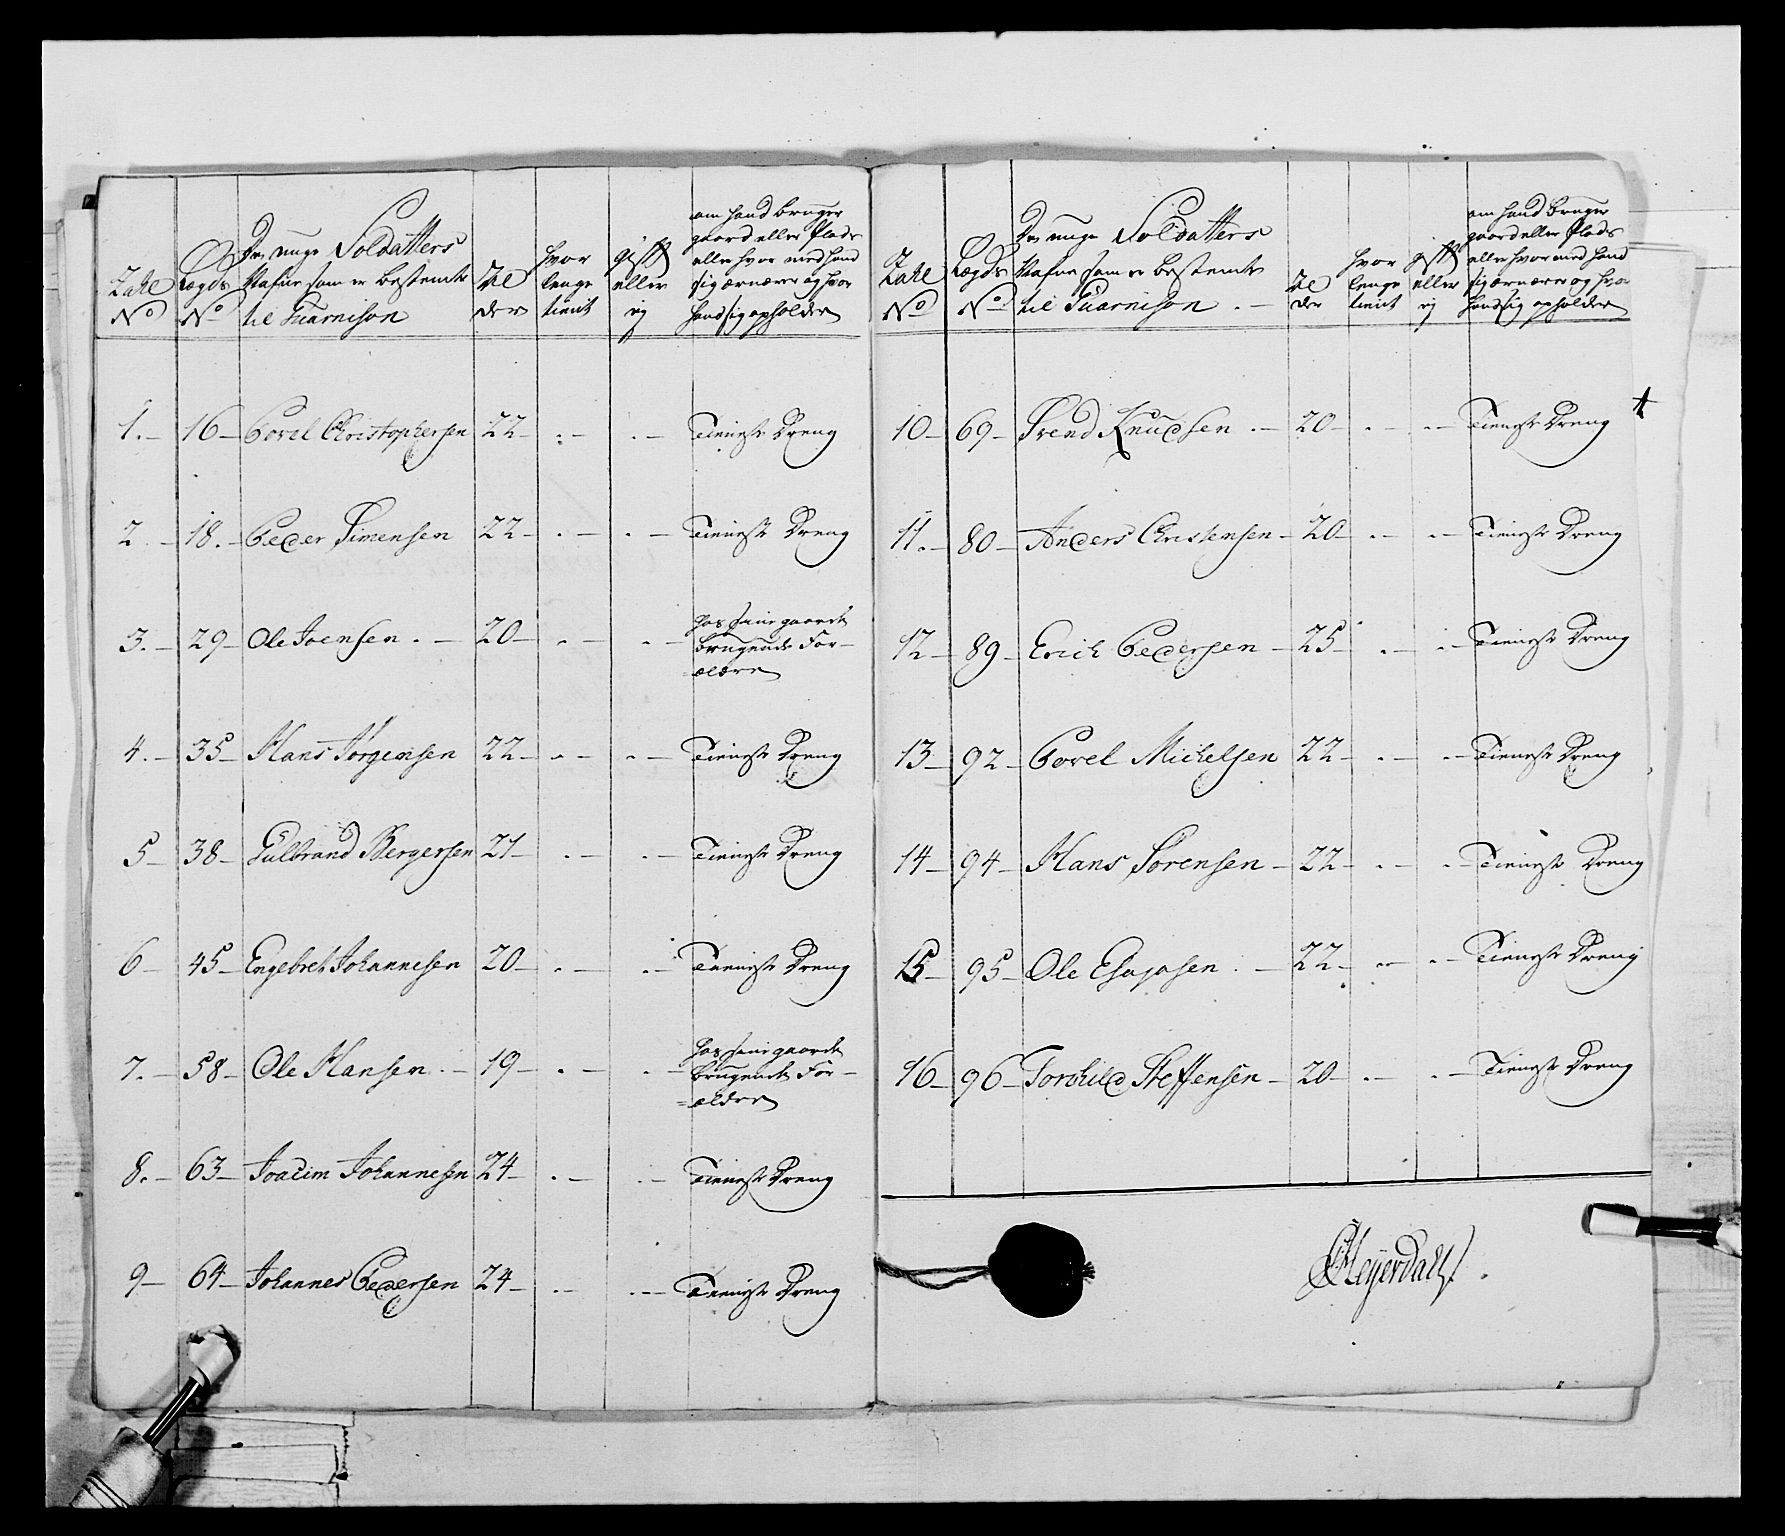 Zahl No
Lægds No
De unge Soldatters Nafne som er bestemte til Guarnison
Al der
hvor lenge tient
gift eller ej
om hand bruger gaard eller Plads eller hvor med hand sig ernærer og hvor hand sig opholder
1.– 16– Povel Christophersen 22– Tieneste Dreng
2.– 18.– Peder Simensen 22– Tieneste Dreng
3.– 29– Ole Joensen.– 20– hos sine gaards
brugende For-
=ældre
4.– 35– Hans Jörgensen 22– Tieneste Dreng
5– 38– Gulbrand Bergersen 21– Tieneste Dreng
6– 45– Engebret Johannesen 20– Tieneste Dreng
7.– 58– Ole Hansen.– 19– hos sine gaards
brugende For-
=ældre
8.– 63– Joacim Johannesen 24– Tieneste Dreng
9– 64– Johannes Pedersen 24– Tieneste Dreng
Zahl No
Lægds No
De unge Soldatters Nafne som er bestemte til Guarnison.–
Al der
hvor lenge tient
gift eller ej
om hand bruger gaard eller Plads eller hvor med hand sig ernærer og hvor hand sig opholder
10– 69– Svend Knudsen.– 20– Tieneste Dreng
11.– 80– Anders Christensen– 20– Tieneste Dreng
12– 89– Erich Pedersen– 25– Tieneste Dreng
13– 92– Povel Michelsen 22– Tieneste Dreng
14– 94– Hans Sörensen– 22– Tieneste Dreng
15– 95– Ole Esajasen.– 22– Tieneste Dreng
16– 96– Torchild Steffensen– 20– Tieneste Dreng
Heyerdahl